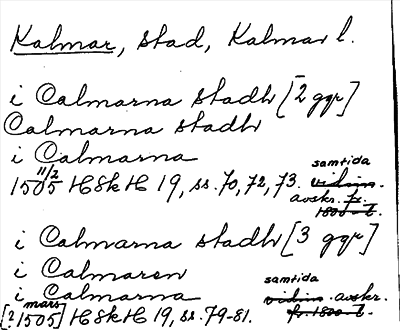 Kalmar, stad, Kalmar l.
i Calmarna stadh [2 ggr]
Calmarna stadh
i Calmarna
11/2 samtida
1505 HSkH 19, ss. 70, 72, 73. vidim.
avskr. fr.
1800-t.
i Calmarna stadh [3 ggr]
i Calmaren
i Calmarna samtida
vidim. avskr.
mars fr. 1800-t.
[? 1505] HSkH 19, ss. 79-81.